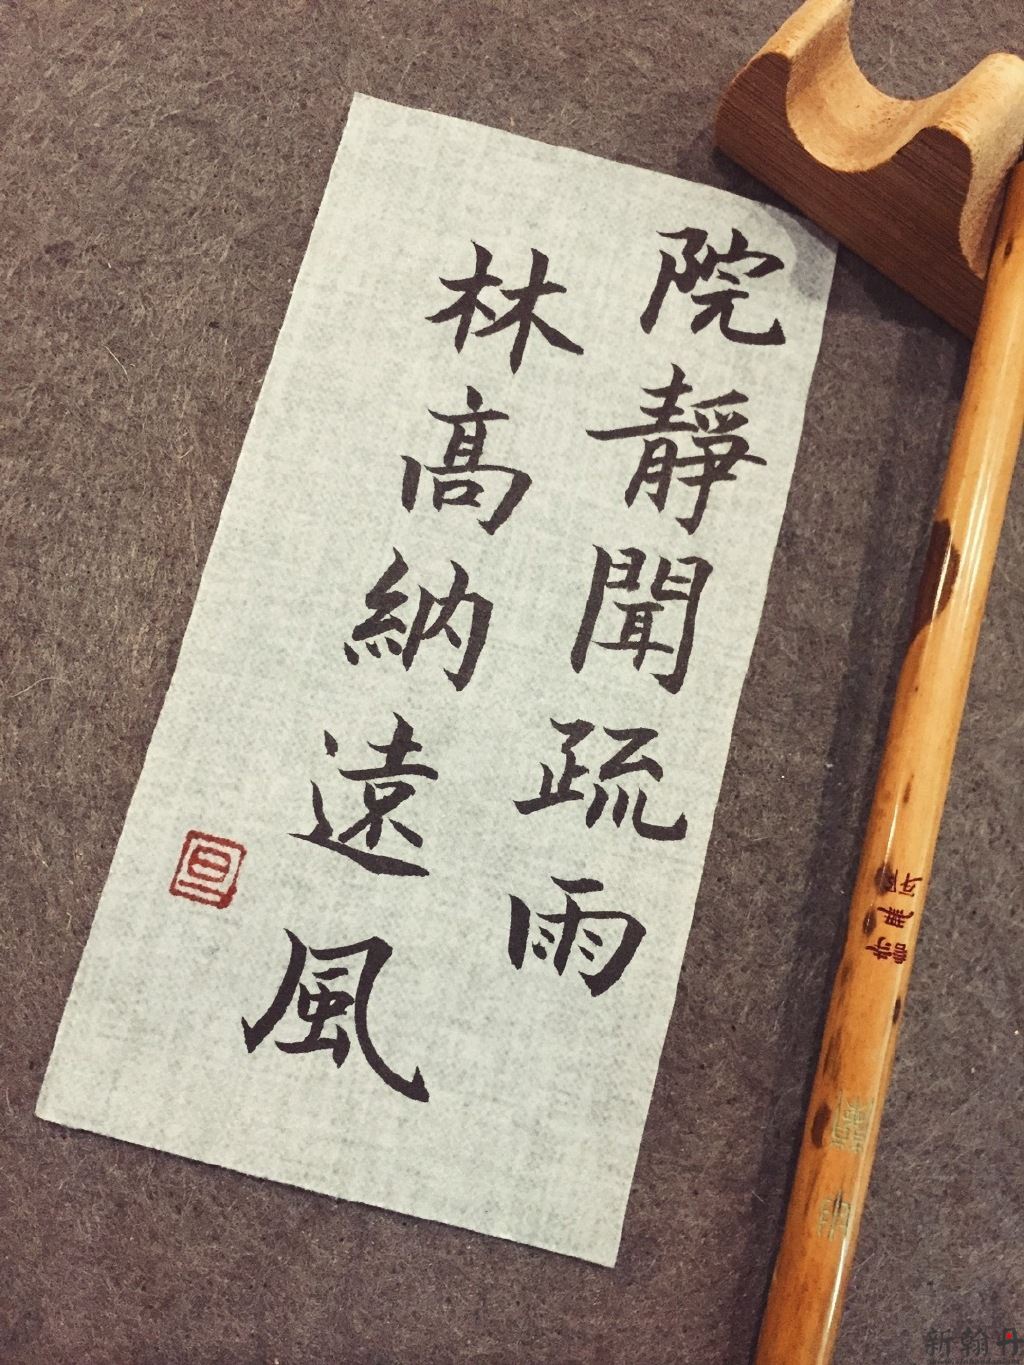 院靜聞疏雨
林高納遠風
新翰